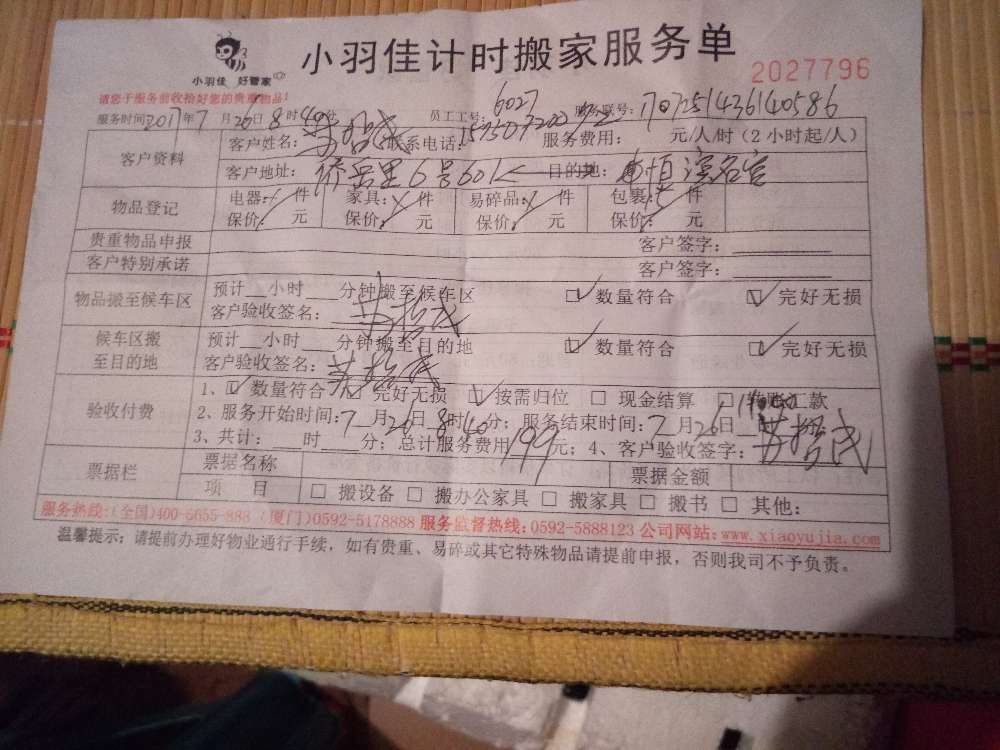 小羽佳 好管家
小羽佳计时搬家服务单
2027796
请您于服务前收拾好您的贵重物品!
服务时间2017年7月26日8时40分 员工工号:6027 服务联号:1707251436140586
客户资料 客户姓名: 联系电话: 服务费用: 元/人/时(2小时起/人)
客户地址:侨岳里6号601 目的地:
物品登记 电器: 件 家具: 件 易碎品: 件 包裹: 件
保价: 元 保价: 元 保价: 元 保价: 元
贵重物品申报 客户签字:
客户特别承诺 客户签字:
物品搬至候车区 预计__小时___分钟搬至候车区 ☑数量符合 ☑完好无损
客户验收签名:
候车区搬至目的地 预计__小时___分钟搬至目的地 ☑数量符合 ☑完好无损
客户验收签名:
验收付费 1、☑数量符合 ☑完好无损 ☑按需归位 □现金结算 □转账汇款
2、服务开始时间:7月26日8时40分; 服务结束时间:7月26日 时 分
3、共计:___时___分; 总计服务费用199元; 4、客户验收签字:
票据栏 票据名称 票据金额
项 目 □搬设备 □搬办公家具 □搬家具 □搬书 □其他:
服务热线:(全国)400-6655-888 (厦门)0592-5178888 服务监督热线:0592-5888123 公司网站:www.xiaoyujia.com
温馨提示:请提前办理好物业通行手续,如有贵重、易碎或其它特殊物品请提前申报,否则我司不予负责。